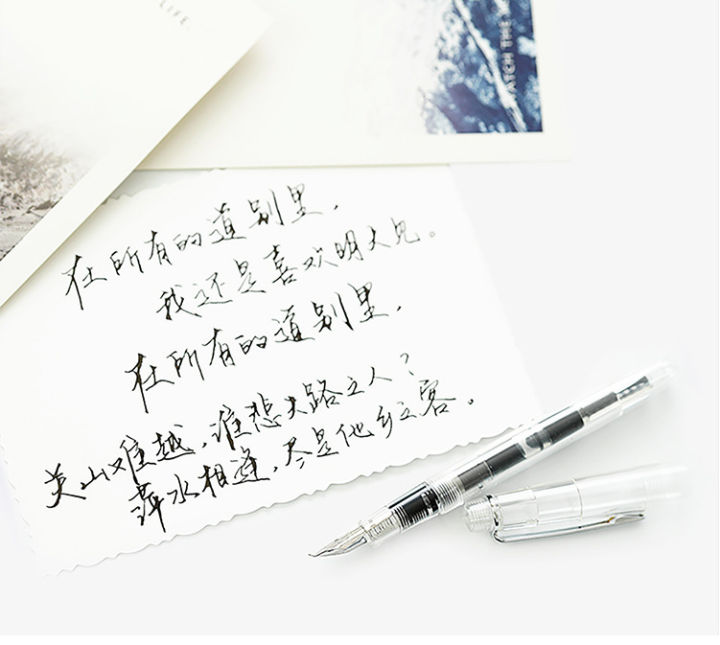 LIFE.
ATCH THE
在所有的道别里，
我还是喜欢明天见。
在所有的道别里，
关山难越，谁悲失路之人？
萍水相逢，尽是他乡之客。